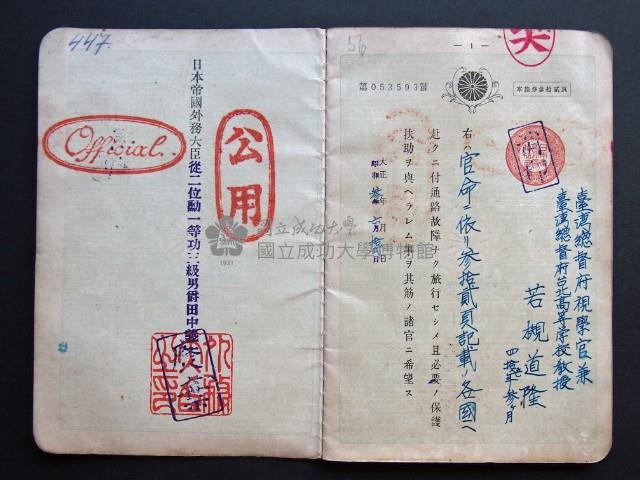 56
— 1 —
第053593號
本旅券參拾貳頁
臺灣總督府視學官兼
臺灣總督府台北高等學校教授
若槻道隆
右ハ官命ニ依リ參拾貳頁記載ノ各國ヘ
赴クニ付通路故障ナク旅行セシメ且必要ノ保護
扶助ヲ與ヘラレム事ヲ其筋ノ諸官ニ希望ス
大正 年 月 日
447.
日本帝國外務大臣從二位勳一等功三級男爵田中義
公用
Official.
國立成功大學
國立成功大學博物館
1931